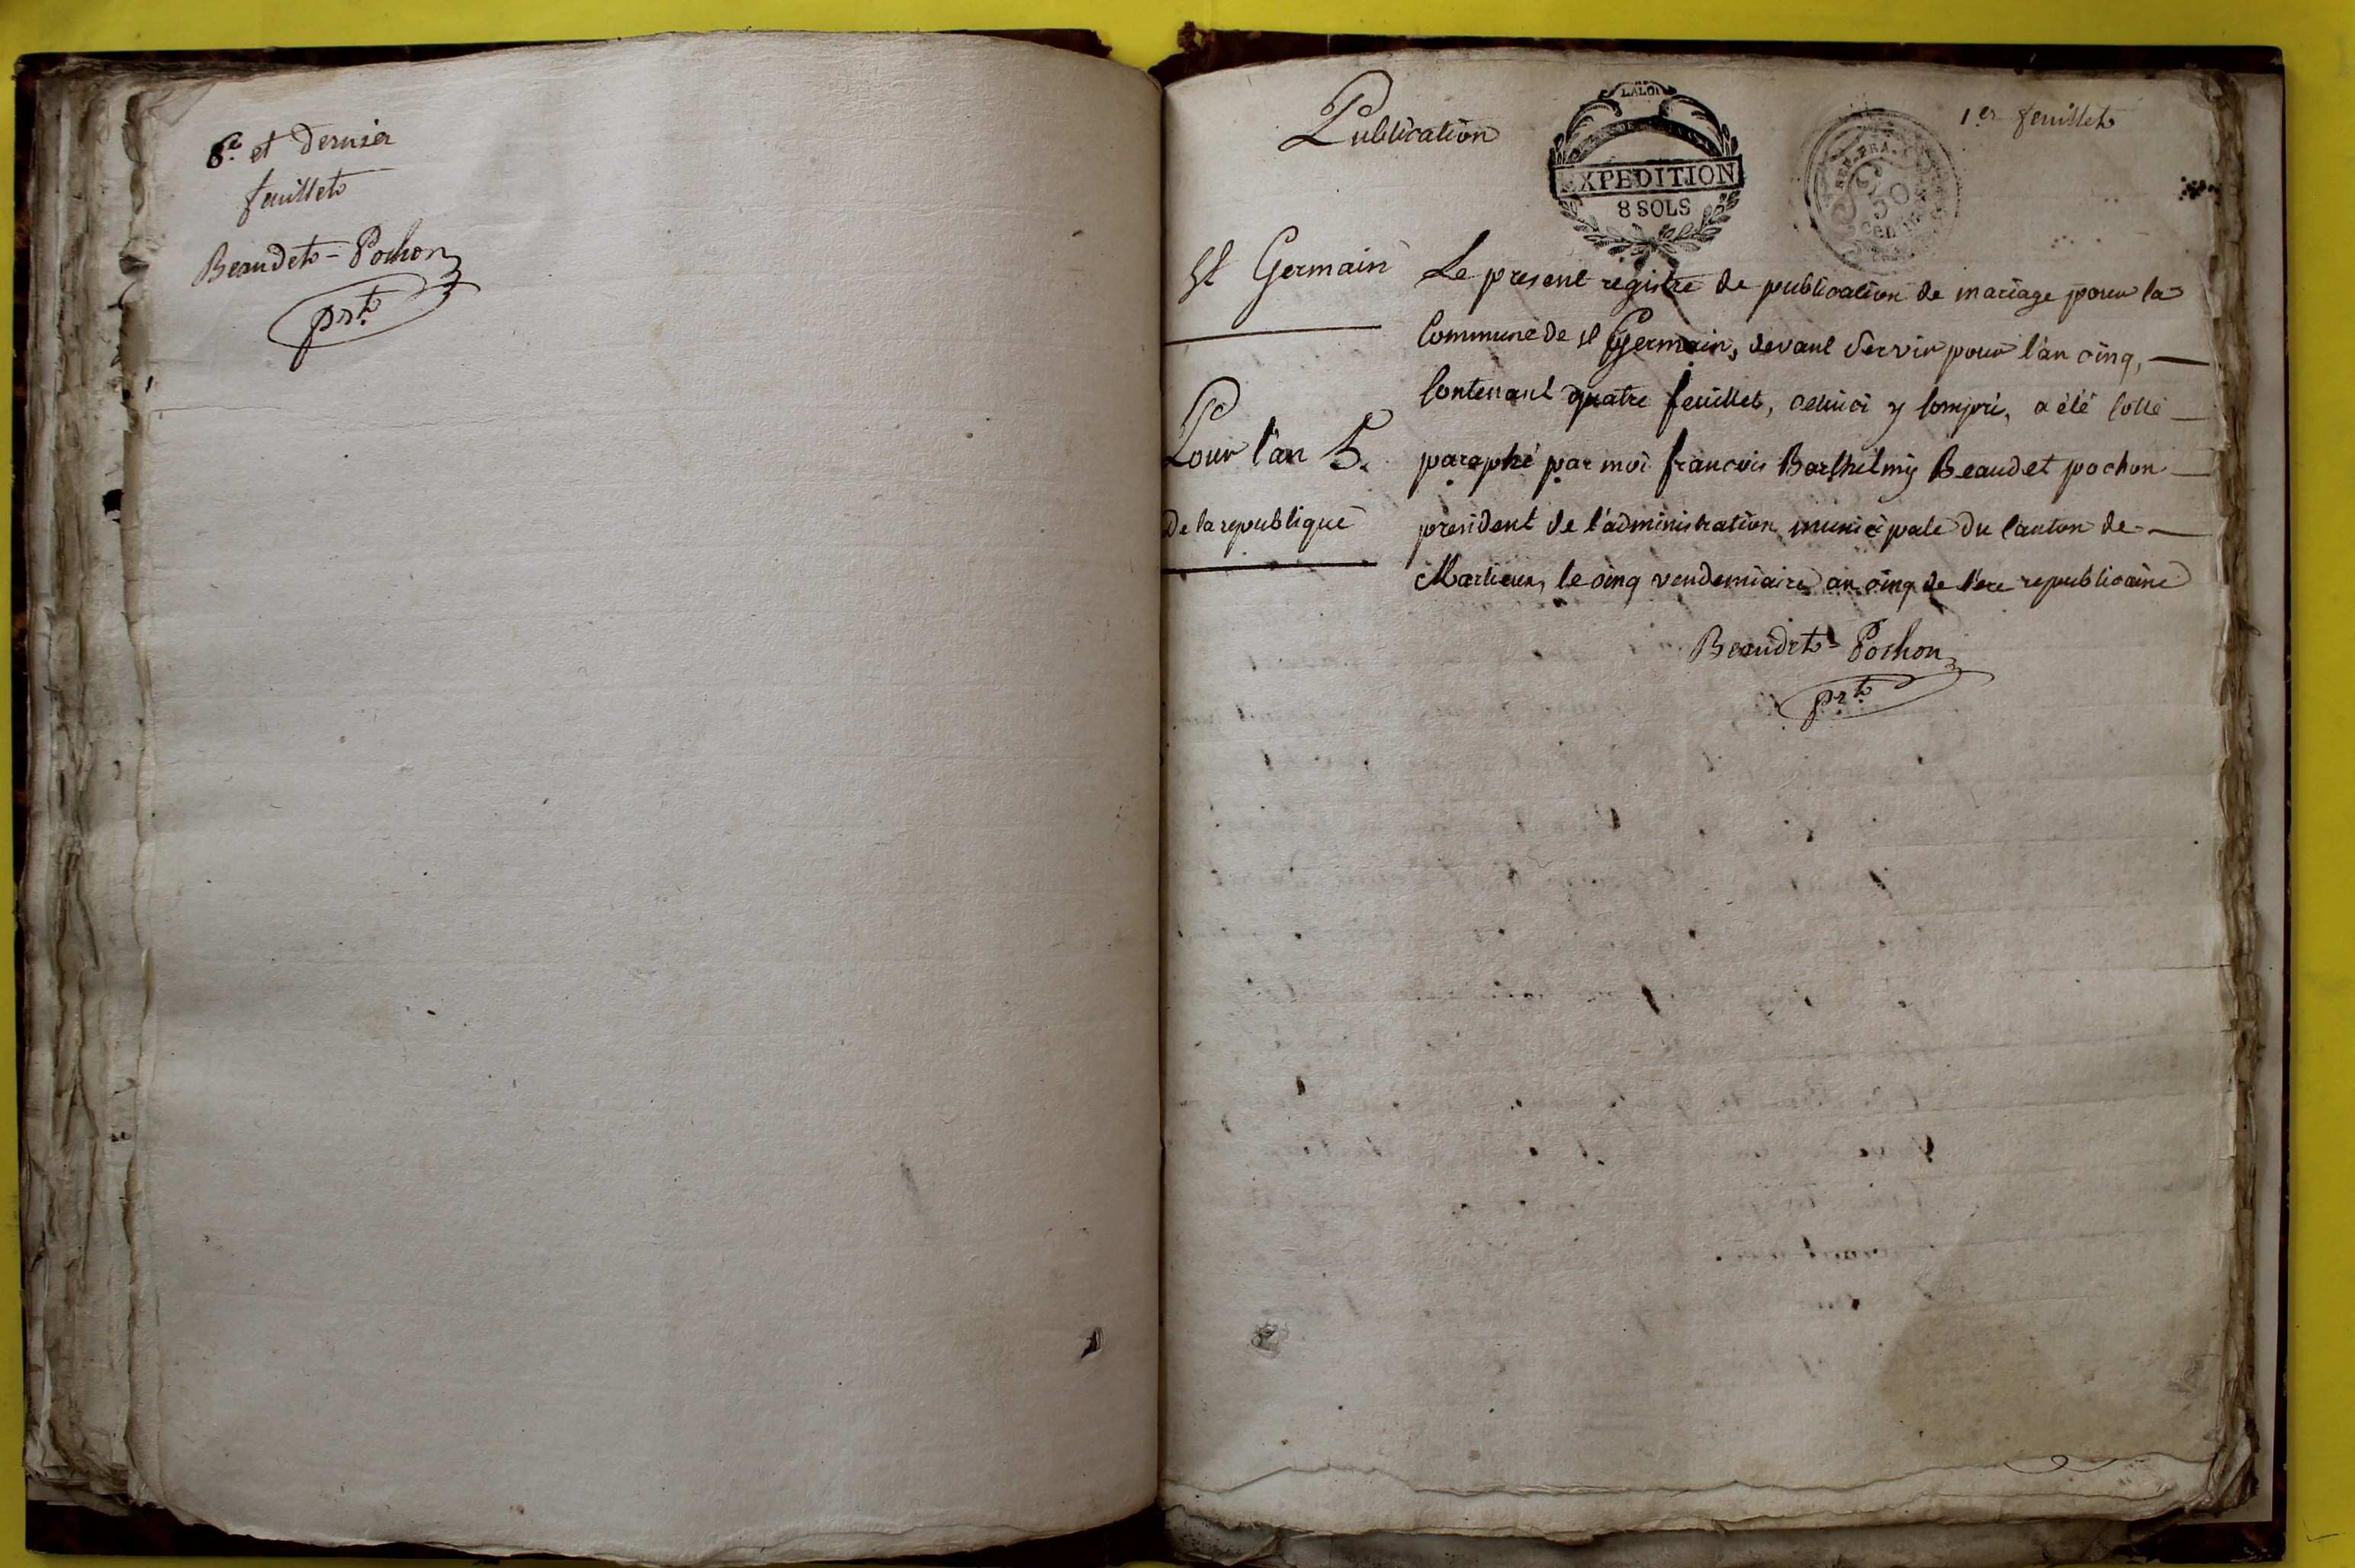 8e et dernier
feuillet
Beaudet-Pochon
prt.
Publication
LA LOI
EXPEDITION
8 SOLS
REP. FRA.
50
Centimes
1er feuillet
St Germain
Pour l'an 5.
de la republique
Le present registre de publication de mariage pour la
Commune de St Germain, devant servir pour l'an cinq,
Contenant quatre feuillet, celuici y Compri, a été Cotté
paraphé par moi francois Barthelmy Beaudet pochon
president de l'administration municipale du Canton de
Marlieux, le cinq vendemiaire an cinq de l'ere republicaine
Beaudet-Pochon
prt.